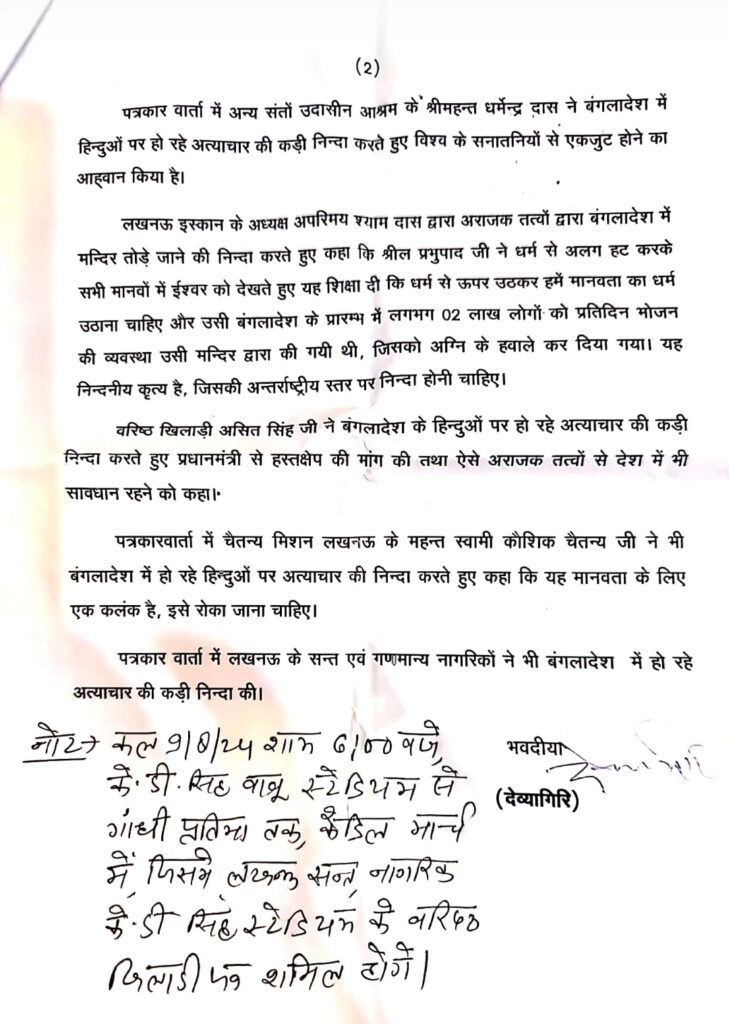 (2)
पत्रकार वार्ता में अन्य संतों उदासीन आश्रम के श्रीमहन्त धर्मेन्द्र दास ने बंगलादेश में
हिन्दुओं पर हो रहे अत्याचार की कड़ी निन्दा करते हुए विश्व के सनातनियों से एकजुट होने का
आह्वान किया है।
लखनऊ इस्कान के अध्यक्ष अपरिमय श्याम दास द्वारा अराजक तत्वों द्वारा बंगलादेश में
मन्दिर तोड़े जाने की निन्दा करते हुए कहा कि श्रील प्रभुपाद जी ने धर्म से अलग हट करके
सभी मानवों में ईश्वर को देखते हुए यह शिक्षा दी कि धर्म से ऊपर उठकर हमें मानवता का धर्म
उठाना चाहिए और उसी बंगलादेश के प्रारम्भ में लगभग 02 लाख लोगों को प्रतिदिन भोजन
की व्यवस्था उसी मन्दिर द्वारा की गयी थी, जिसको अग्नि के हवाले कर दिया गया। यह
निन्दनीय कृत्य है, जिसकी अन्तर्राष्ट्रीय स्तर पर निन्दा होनी चाहिए।
वरिष्ठ खिलाड़ी असित सिंह जी ने बंगलादेश के हिन्दुओं पर हो रहे अत्याचार की कड़ी
निन्दा करते हुए प्रधानमंत्री से हस्तक्षेप की मांग की तथा ऐसे अराजक तत्वों से देश में भी
सावधान रहने को कहा।
पत्रकारवार्ता में चैतन्य मिशन लखनऊ के महन्त स्वामी कौशिक चैतन्य जी ने भी
बंगलादेश में हो रहे हिन्दुओं पर अत्याचार की निन्दा करते हुए कहा कि यह मानवता के लिए
एक कलंक है, इसे रोका जाना चाहिए।
पत्रकार वार्ता में लखनऊ के सन्त एवं गणमान्य नागरिकों ने भी बंगलादेश में हो रहे
अत्याचार की कड़ी निन्दा की।
भवदीया
(देव्यागिरि)
नोट→ कल 9/8/24 शाम 6:00 बजे,
के॰ डी॰ सिंह बाबू स्टेडियम से
गांधी प्रतिमा तक, कैंडिल मार्च
में, जिसमे लखनऊ सन्त, नागरिक
के॰ डी सिंह स्टेडियम के वरिष्ठ
खिलाडी शामिल होगें।